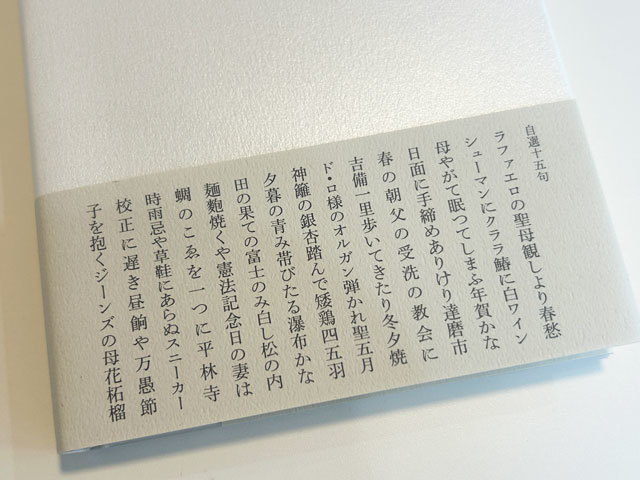 自選十五句
ラファエロの聖母観しより春愁
シューマンにクララ鰆に白ワイン
母やがて眠つてしまふ年賀かな
日面に手締めありけり達磨市
春の朝父の受洗の教会に
吉備一里歩いてきたり冬夕焼
ド・ロ様のオルガン弾かれ聖五月
神籬の銀杏踏んで矮鶏四五羽
夕暮の青み帯びたる瀑布かな
田の果ての富士のみ白し松の内
麺麭焼くや憲法記念日の妻は
蜩のこゑを一つに平林寺
時雨忌や草鞋にあらぬスニーカー
校正に遅き昼餉や万愚節
子を抱くジーンズの母花柘榴